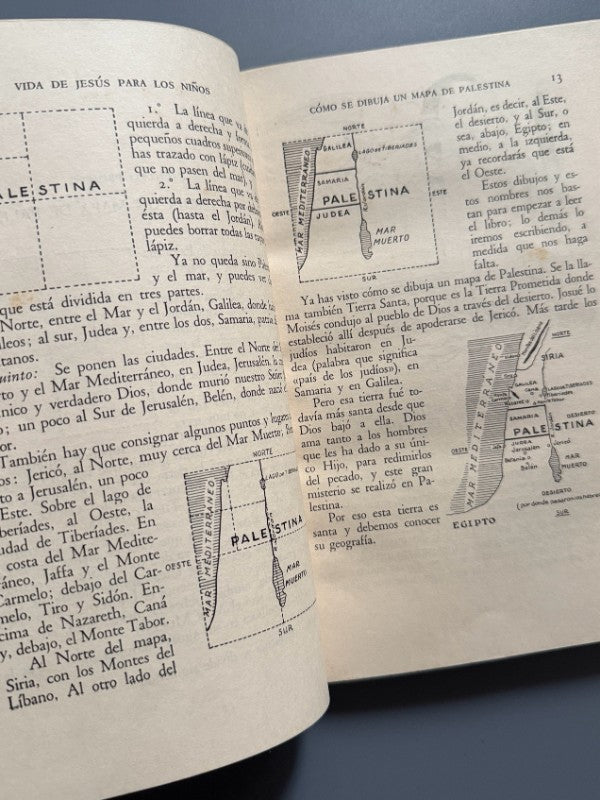 VIDA DE JESÚS PARA LOS NIÑOS
1.º La línea que va de
quierda a derecha y
pequeños cuadros
has trazado con lápiz
que no pasen del mar).
2.º La línea que va de
quierda a derecha por
ésta (hasta el Jordán).
puedes borrar todas las
lápiz.
Ya no queda sino
y el mar, y puedes
que está dividida en tres partes.
Norte, entre el Mar y el Jordán, Galilea, donde
leos; al sur, Judea y, entre los dos, Samaria, patria
itanos.
uinto: Se ponen las ciudades. Entre el Norte del
rto y el Mar Mediterráneo, en Judea, Jerusalén,
nico y verdadero Dios, donde murió nuestro Señor
o; un poco al Sur de Jerusalén, Belén, donde nació
or.
También hay que consignar algunos puntos y lugares
os: Jericó, al Norte, muy cerca del Mar Muerto;
to a Jerusalén, un poco
Este. Sobre el lago de
beríades, al Oeste, la
udad de Tiberíades. En
costa del Mar Medite-
ráneo, Jaffa y el Monte
Carmelo; debajo del Car-
melo, Tiro y Sidón. En-
cima de Nazareth, Caná
y, debajo, el Monte Tabor.
Al Norte del mapa,
Siria, con los Montes del
Líbano, Al otro lado del
ALESTINA
NORTE
LAGO DE TIBERI
MAR MEDITERRÁNEO
PALESTINA
OESTE
MAR
MUERTO
SUR
CÓMO SE DIBUJA UN MAPA DE PALESTINA
13
NORTE
GALILEA
LAGO DE TIBERIADES
MAR MEDITERRANEO
SAMARIA
PALESTINA
OESTE
ESTE
JUDEA
MAR
MUERTO
SUR
Jordán, es decir, al Este,
el desierto, y al Sur, o
sea, abajo, Egipto; en
medio, a la izquierda,
ya recordarás que está
el Oeste.
Estos dibujos y es-
tos nombres nos bas-
tan para empezar a leer
el libro; lo demás lo
iremos escribiendo, a
medida que nos haga
falta.
Ya has visto cómo se dibuja un mapa de Palestina. Se la lla-
ma también Tierra Santa, porque es la Tierra Prometida donde
Moisés condujo al pueblo de Dios a través del desierto. Josué lo
estableció allí después de apoderarse de Jericó. Más tarde los
judíos habitaron en Ju-
dea (palabra que significa
«país de los judíos»), en
Samaria y en Galilea.
Pero esa tierra fué to-
davía más santa desde que
Dios bajó a ella. Dios
ama tanto a los hombres
que les ha dado a su úni-
co Hijo, para redimirlos
del pecado, y este gran
misterio se realizó en Pa-
lestina.
Por eso esta tierra es
santa y debemos conocer
su geografía.
NORTE
SIRIA
MAR MEDITERRANEO
GALILEA
LAGO TIBERIADES
SAMARIA
DESIERTO
PALESTINA
OESTE
JUDEA
Jerusalén
Betania
Belén
MAR
MUERTO
DESIERTO
SUR
EGIPTO